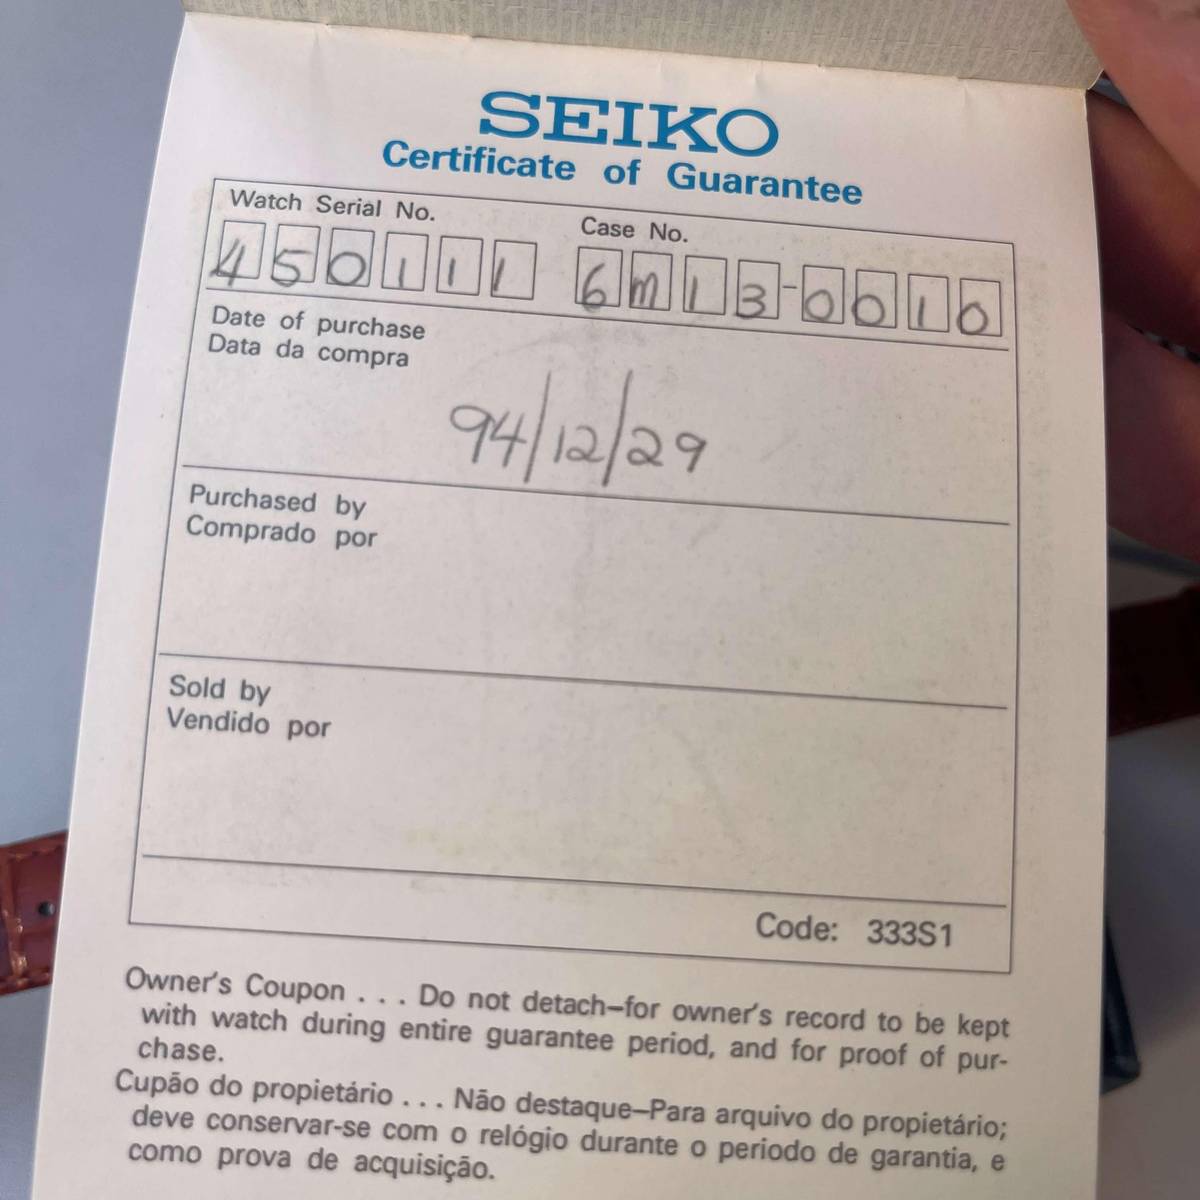 SEIKO
Certificate of Guarantee
Watch Serial No. Case No.
450111 6M13-0010
Date of purchase
Data da compra
94/12/29
Purchased by
Comprado por
Sold by
Vendido por
Code: 333S1
Owner's Coupon . . . Do not detach–for owner's record to be kept
with watch during entire guarantee period, and for proof of pur-
chase.
Cupão do propietário . . . Não destaque–Para arquivo do propietário;
deve conservar-se com o relógio durante o periodo de garantia, e
como prova de acquisição.